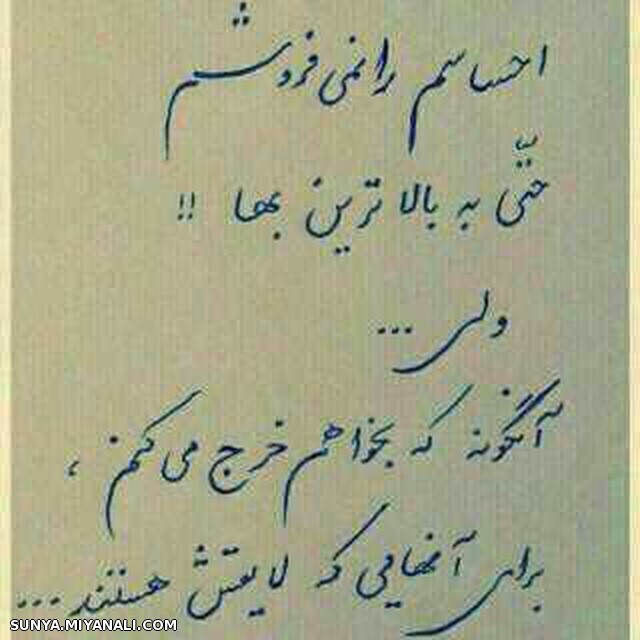 احساسم را نمی فروشم
حتّی به بالاترین بها !!
ولی...
آنگونه که بخواهم خرج می کنم ،
برای آنهایی که لایقش هستند...
SUNYA.MIYANALI.COM